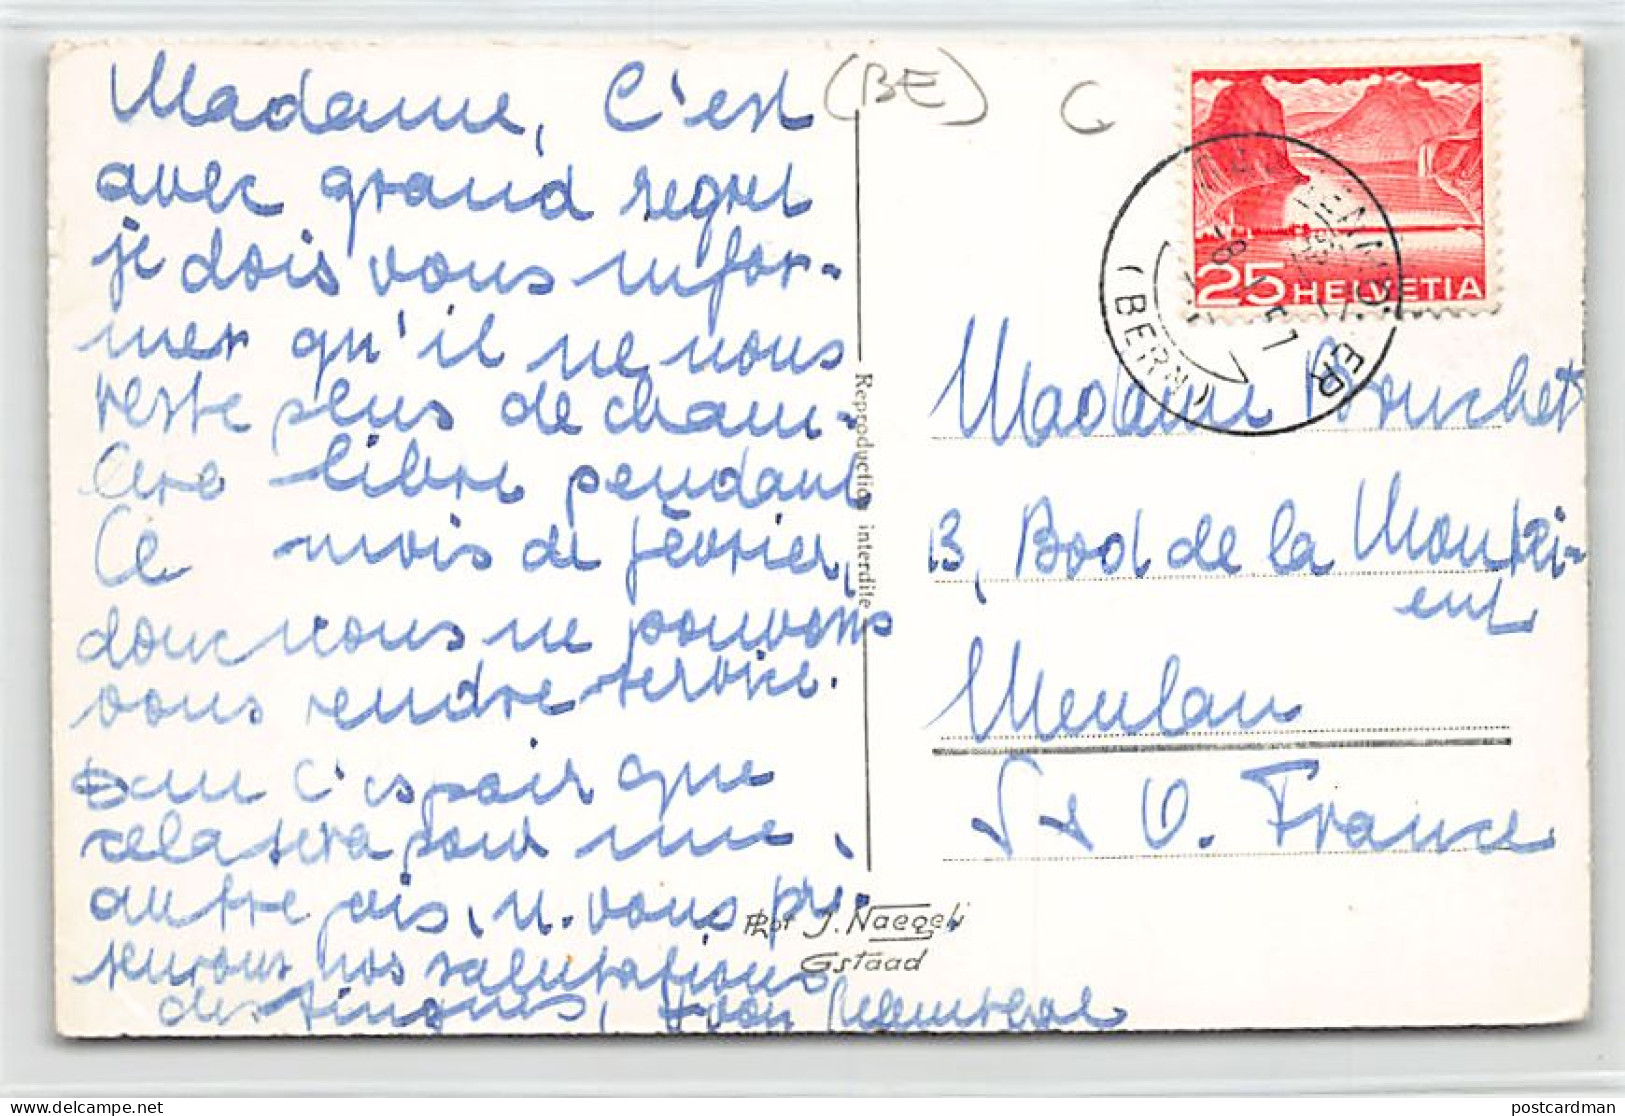 Madame, C'est
avec grand regret
je dois vous infor-
mer qu'il ne nous
reste plus de cham-
bre libre pendant
Ce mois de février,
donc nous ne pouvons
vous rendre service.
Dans l'espoir que
cela sera pour une
autre fois, n. vous pré-
sentons nos salutations
distingués,
(BE)
25 HELVETIA
(BERN)
Reproduction interdite
Madame Bouchet
13, Bod de la Montci-
ent
Meulan
S + O. France
Phot J. Naegeli
Gstaad
postcardman